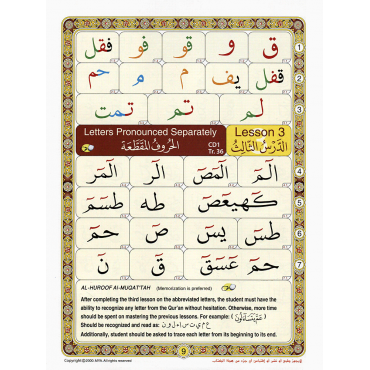 ق و قو فو فقل 1
قفل يف م م حم 2
لم تم تمت 3
Letters Pronounced Separately CD1 Tr. 36 Lesson 3
الْحُرُوفُ الْمُقَطَّعَة الدَّرْسُ الثَّالِثُ
الٓمٓ الٓمٓصٓ الٓرٰ الٓمٓرٰ 4
كٓهٰيٰعٓصٓ طٰهٰ طٰسٓمٓ 5
طٰسٓ يٰسٓ صٓ حٰمٓ 6
حٰمٓ عٓسٓقٓ قٓ نٓ 7
AL-HUROOF AL-MUQAT'TAH (Memorization is preferred)
After completing the third lesson on the abbreviated letters, the student must have the
ability to recognize any letter from the Qur'an without hesitation. Otherwise, more time
should be spent on mastering the previous lessons. For example:
Should be recognized and read as:
Additionally, student should be asked to trace each letter from its beginning to its end.
9